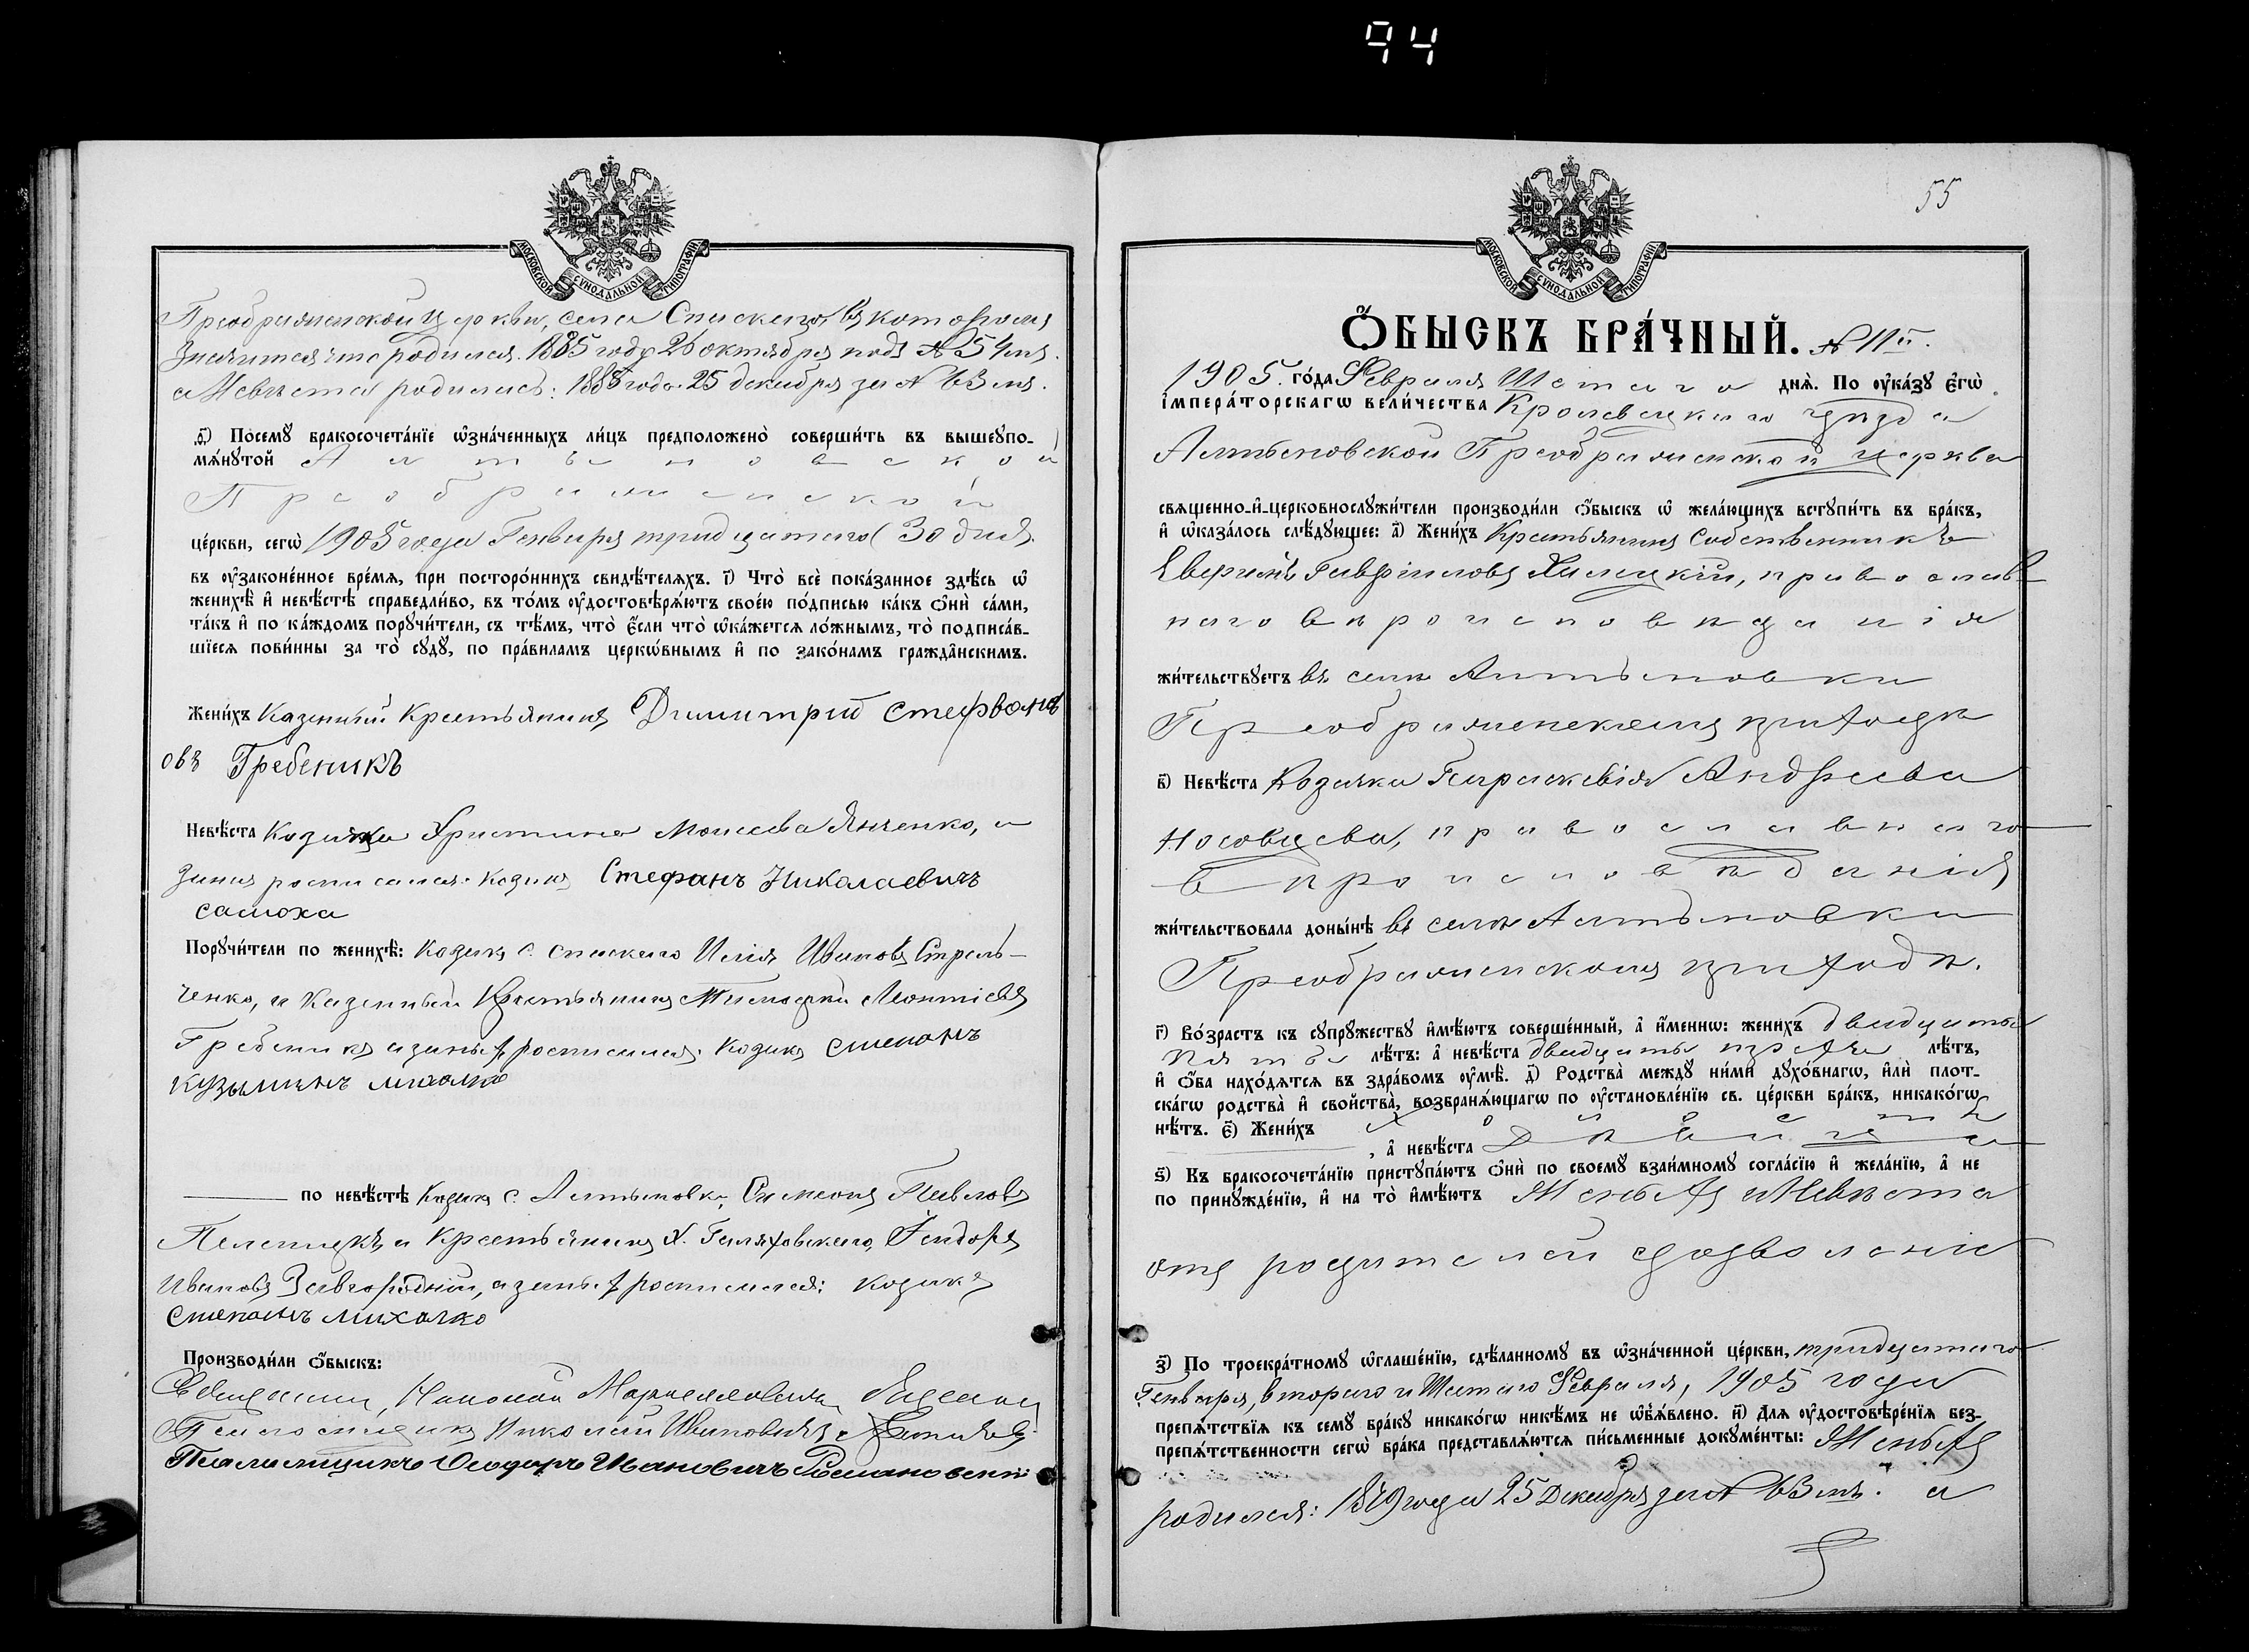 94
МОСКОВСКОЙ СУНОДАЛЬНОЙ ТИПОГРАФІИ
Преображенской церкви, села Спаскаго, въ котором
значится что родился. 1885 году 26 октября подъ № 54 мъ.
а Невѣста родилась: 188 года. 25 декабря за № 63 мъ.
д҃) Посемꙋ̀ бракосочета́нїе ѡ҆зна́ченныхъ ли́цъ предположено̀ соверши́ть въ вышеꙋпо-
мѧ́нꙋтой Алтыновской
Преображенской
це́ркви, сегѡ̀ 1905 года Генваря тридцатаго (30 дня.
въ ᲂу҆зако́не́нное вре́мѧ, при посторо́ннихъ свидѣ́телѧхъ. і҃) Что̀ всѐ пока́занное здѣ́сь ѡ҆
женихѣ̀ и҆ невѣ́стѣ справедли́во, въ то́мъ ᲂу҆достовѣрѧ́ютъ свое́ю по́дписью ка́къ ѻ҆нѝ са́ми,
та́къ и҆ по ка́ждомъ порꙋчи́тели, съ тѣ́мъ, что̀ є҆́сли что̀ ѡ҆ка́жется ло́жнымъ, то̀ подписа́в-
шїеся пови́нны за то̀ сꙋдꙋ̀, по пра́виламъ церкѡ́внымъ и҆ по зако́намъ гражда̂нскимъ.
Жени́хъ Казенный Крестьянинъ Димитрий Стефвонв
овъ Гребеникъ
Невѣ́ста Козачка Христина Моисеева Янченко, а
за нихъ росписался: козакъ Стефанъ Николаевичъ
самоха
Порꙋчи́тели по женихѣ̀: Козакъ с. Спаскаго Илія Ивановъ Стрель-
ченко, и Казенный Крестьянинъ Тимофей Леонтіевъ
Гребеникъ а за нихъ росписался: козакъ Степанъ
Кузьминъ михалко
по невѣ́стѣ Козакъ с. Алтыновки, Симеонъ Павловъ
и Крестьянинъ Х. Галяховскаго, Феодоръ
Ивановъ Завгородній, а за нихъ росписался: козакъ
Степанъ михалко
Производи́ли ѻ҆́быскъ:
Священникъ,
Псаломщикъ Николай Ивановичъ
Псаломщикъ Феодоръ Ивановичъ Романовский
МОСКОВСКОЙ СУНОДАЛЬНОЙ ТИПОГРАФІИ
55
Ѻ҆́БЫСКЪ БРА́ЧНЫЙ. № 11й.
1905. го́да Февраля Шестаго днѧ̀. По ᲂу҆ка́зꙋ є҆гѡ̀
і҆мпера́торскагѡ вели́чества Кролевецкаго уѣзда
Алтыновской Преображенской церкви
свѧщенно-и҆-церковнослꙋжи́тели производи́ли ѻ҆́быскъ ѡ҆ жела́ющихъ встꙋпи́ть въ бра́къ,
и҆ ѡ҆каза́лось слѣ́дꙋющее: а҃) Жени́хъ Крестьянинъ Собственникъ
Гавріиловъ Хилецкій, православ
наго вѣроисповѣданія
жи́тельствꙋетъ въ селѣ Алтыновки
Преображенскомъ приходѣ
в҃) Невѣ́ста Козачка Параскевія Андреева
Носовцева, православнаго
вѣроисповѣданія
жи́тельствовала доны́нѣ въ селѣ Алтыновки
Преображенскомъ приходѣ.
г҃) Во́зрастъ къ сꙋпрꙋ́жествꙋ и҆мѣ́ютъ соверше́нный, а҆ и҆́меннѡ: жени́хъ двадцать
пять лѣ́тъ: а҆ невѣ́ста двадцать трехъ лѣ́тъ,
и҆ ѻ҆́ба нахо́дѧтся въ здра́вомъ ᲂу҆мѣ̀. д҃) Родства̀ междꙋ̀ ни́ми дꙋхо́внагѡ, и҆лѝ плот-
ска́гѡ родства̀ и҆ сво́йства̀, возбранѧ́ющагѡ по ᲂу҆становле́нїю св. це́ркви бра́къ, никако́гѡ
нѣ́тъ. є҃) Жени́хъ холостъ
, а҆ невѣ́ста дѣвица
ѕ҃) Къ бракосочета́нїю пристꙋпа́ютъ ѻ҆нѝ по своемꙋ̀ взаи́мномꙋ согла́сїю и҆ жела́нїю, а҆ не
по принꙋжде́нїю, и҆ на то̀ и҆мѣ́ютъ Женихъ и Невѣста
отъ родителей дозволеніе
з҃) По троекра́тномꙋ ѡ҆глаше́нїю, сдѣ́ланномꙋ въ ѡ҆зна́ченной це́ркви, тридцатаго
Генваря, втораго и Шестаго Февраля, 1905 года
препѧ́тствїѧ къ семꙋ̀ бра́кꙋ никако́гѡ никѣ́мъ не ѡ҆б̾ѧ́влено. и҃) Длѧ ᲂу҆достовѣре́нїѧ без-
препѧ́тственности сегѡ̀ бра́ка представлѧ́ются пи́сьменные докꙋме́нты: Женихъ
родился: 1879 года 25 Декабря за № 63 мъ. а